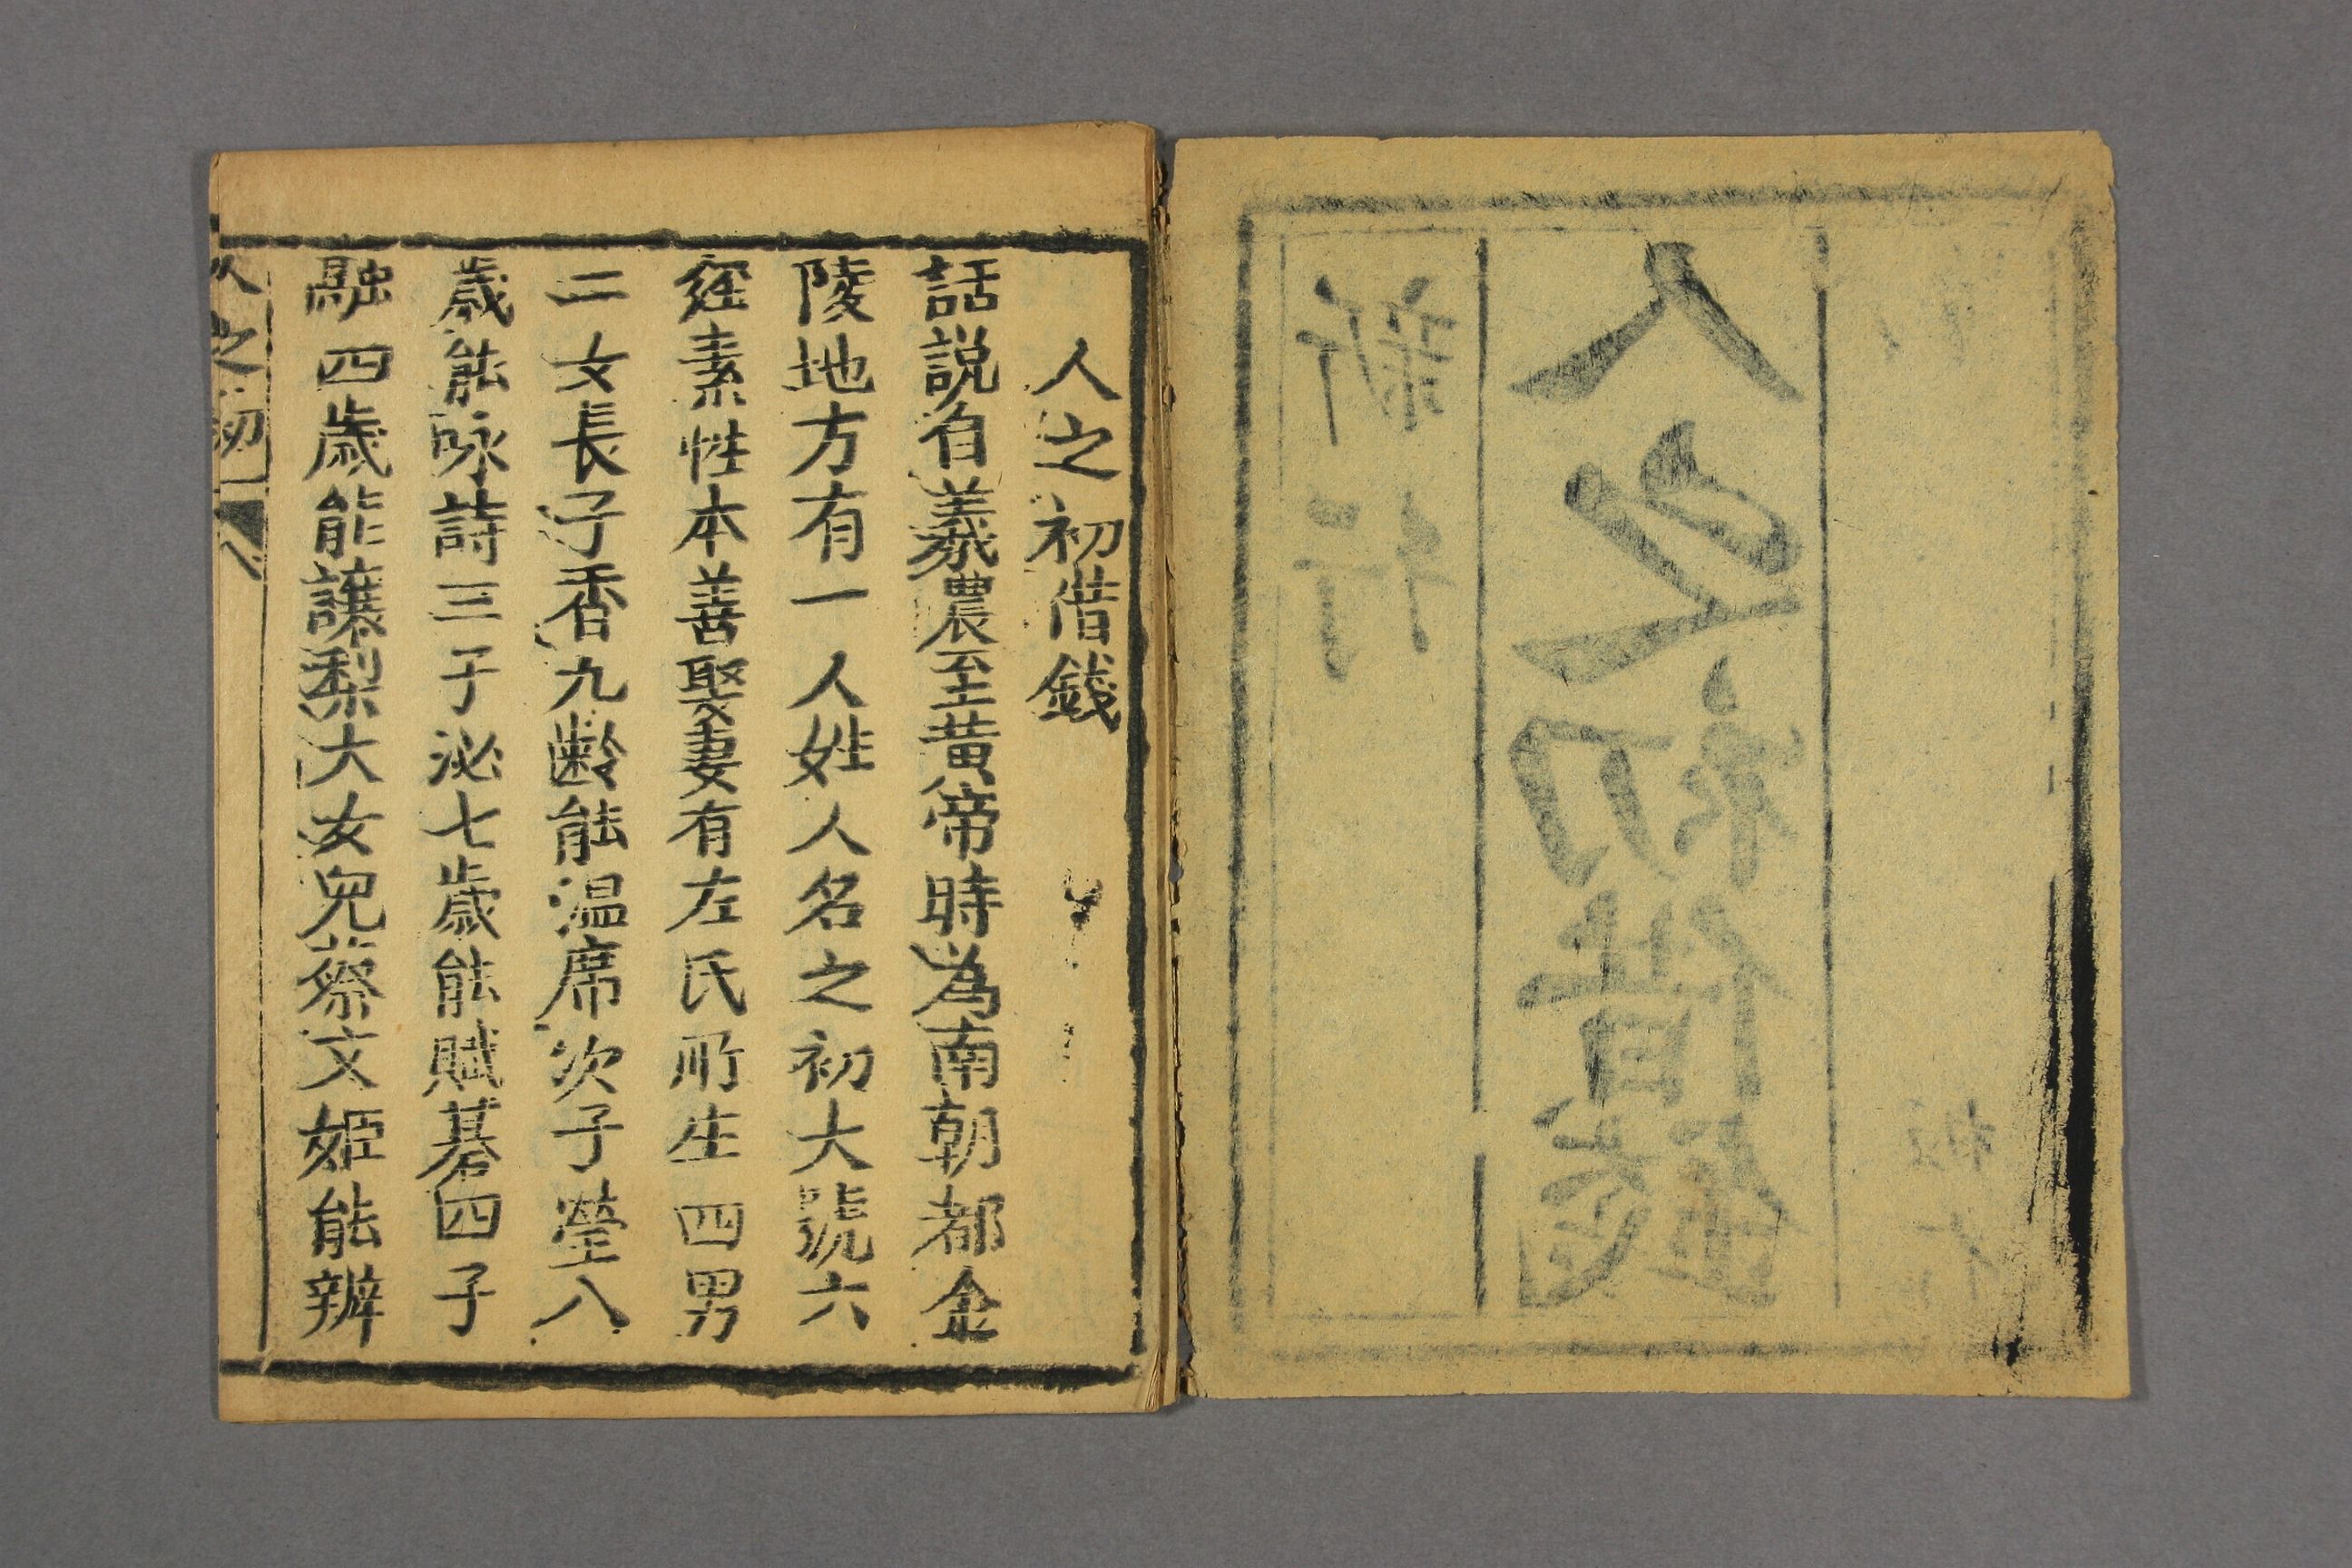 人之初借錢
新刊
人之初借錢
話説自羲農至黃帝時為南朝都金
陵地方有一人姓人名之初大號六
經素性本善娶妻有左氏所生四男
二女長子香九齡能温席次子瑩八
歲能咏詩三子泌七歲能賦碁四子
融四歲能讓梨大女兒蔡文姬能辨
人之初 八